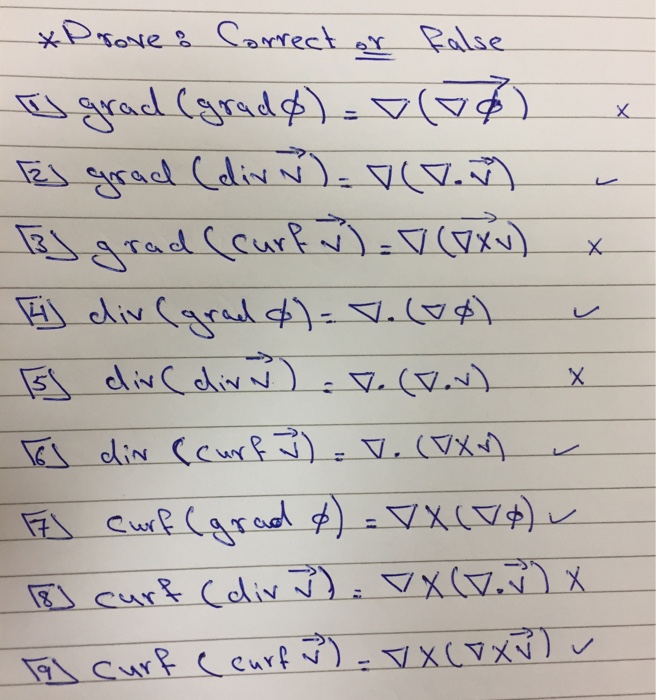 *Prove: Correct or False
[1] grad (grad ϕ) = ∇(∇ϕ⃗) ×
[2] grad (div v⃗) = ∇(∇.v⃗) ✓
[3] grad (curl v⃗) = ∇(∇×v⃗) ×
[4] div (grad ϕ) = ∇.(∇ϕ) ✓
[5] div (div v⃗) = ∇.(∇.v) ×
[6] div (curl v⃗) = ∇.(∇×v) ✓
[7] curl (grad ϕ) = ∇×(∇ϕ) ✓
[8] curl (div v⃗) = ∇×(∇.v⃗) ×
[9] curl (curl v⃗) = ∇×(∇×v⃗) ✓